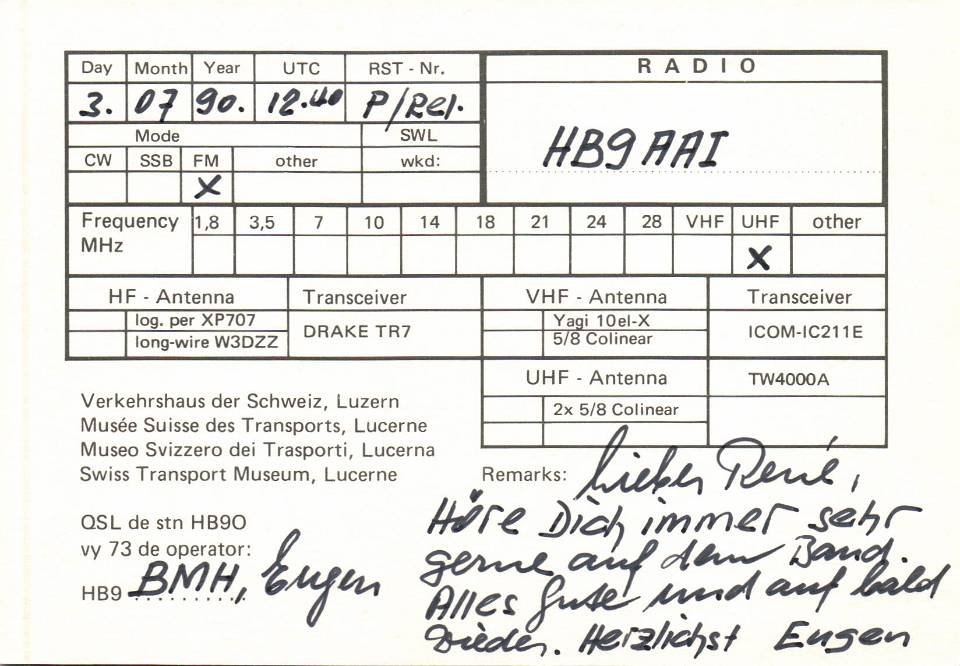 Day Month Year UTC RST - Nr. RADIO
3. 07 90. 12.40 P/Rel. HB9AAI
Mode SWL
CW SSB FM other wkd:
X
Frequency MHz 1,8 3,5 7 10 14 18 21 24 28 VHF UHF other
X
HF - Antenna Transceiver VHF - Antenna Transceiver
log. per XP707 DRAKE TR7 Yagi 10el-X ICOM-IC211E
long-wire W3DZZ 5/8 Colinear
UHF - Antenna TW4000A
2x 5/8 Colinear
Verkehrshaus der Schweiz, Luzern
Musée Suisse des Transports, Lucerne
Museo Svizzero dei Trasporti, Lucerna
Swiss Transport Museum, Lucerne
QSL de stn HB9O
vy 73 de operator:
HB9 BMH, Eugen
Remarks: Lieber René,
Höre Dich immer sehr
gerne auf dem Band.
Alles Gute und auf bald
wieder. Herzlichst Eugen